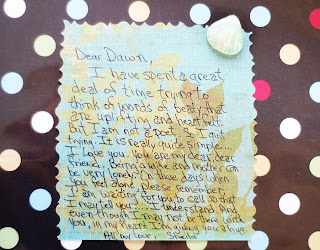 Dear Dawn,
I have spent a great
deal of time trying to
think of words of beauty that
are uplifting and heartfelt
But I am not a poet. So, I quit
trying. It is really quite simple....
I love you. You are my dear, dear
friend. Being a wife and mother can
be very lonely. On those days when
you feel alone, please remember
I am waiting for you to call so that
I may tell you.... I understand. And
even though I may not be there with
you, in my heart I'm giving you a hug.
All my love, Sheila